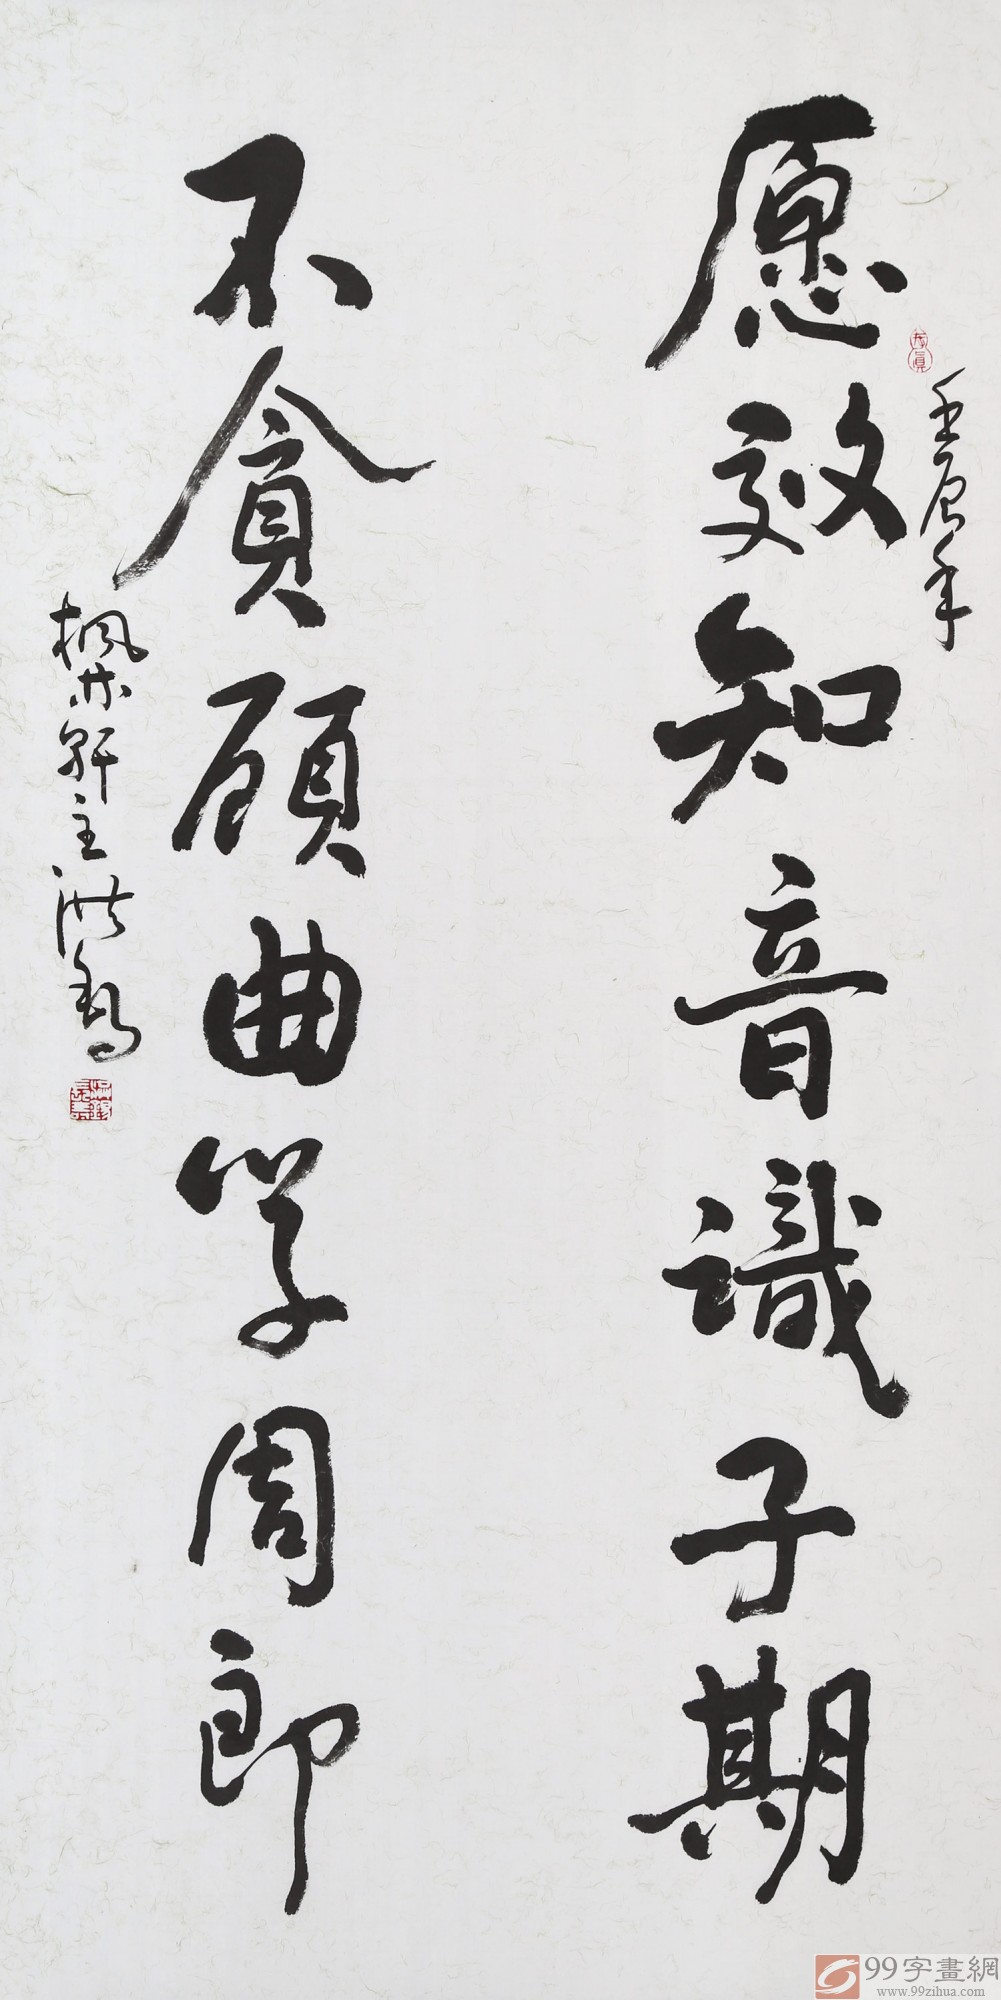 壬辰年
愿效知音識子期
不貪顧曲学周郎
楓林軒主洪
99字畫網
www.99zihua.com